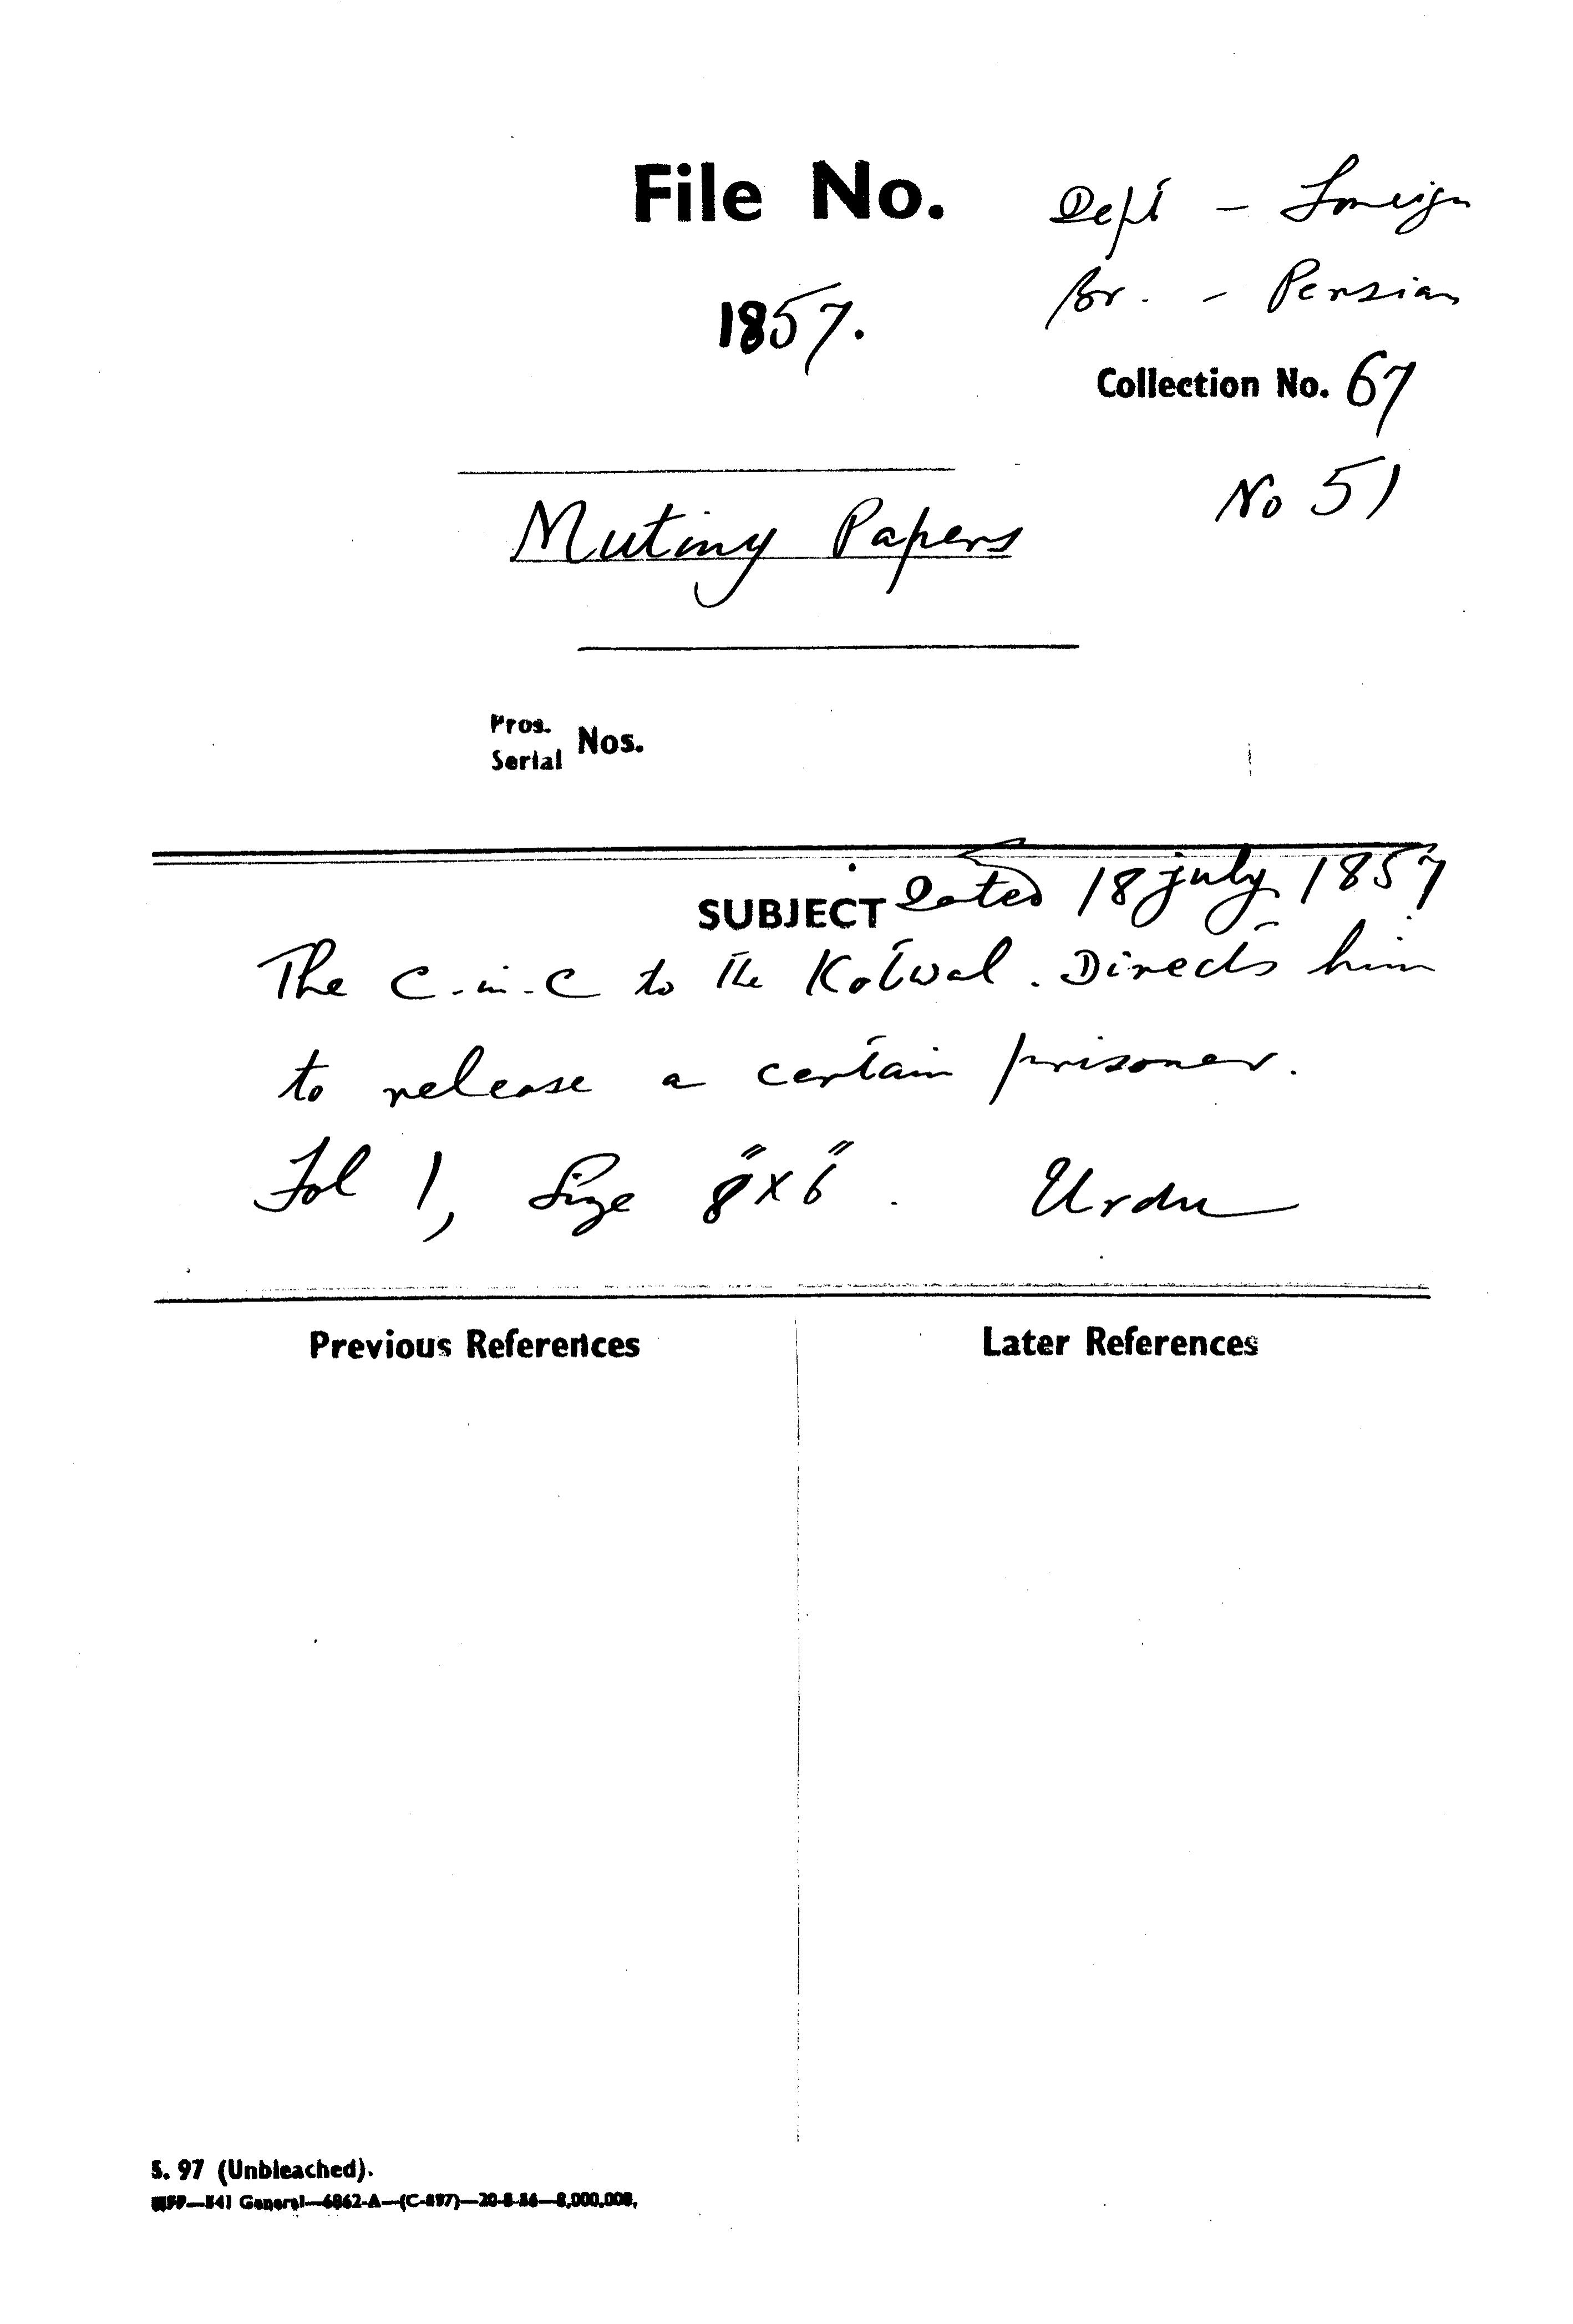 File No. Dept - Foreign
1857. Br. - Persian
Collection No. 67
No 51
Mutiny Papers
Pros.
Serial Nos.
SUBJECT Dated 18 july 1857
The C-in-C to the Kotwal. Directs him
to release a certain prisoner.
Fol 1, Size 8" x 6". Urdu
Previous References Later References
S. 97 (Unbleached).
General—6862-A—